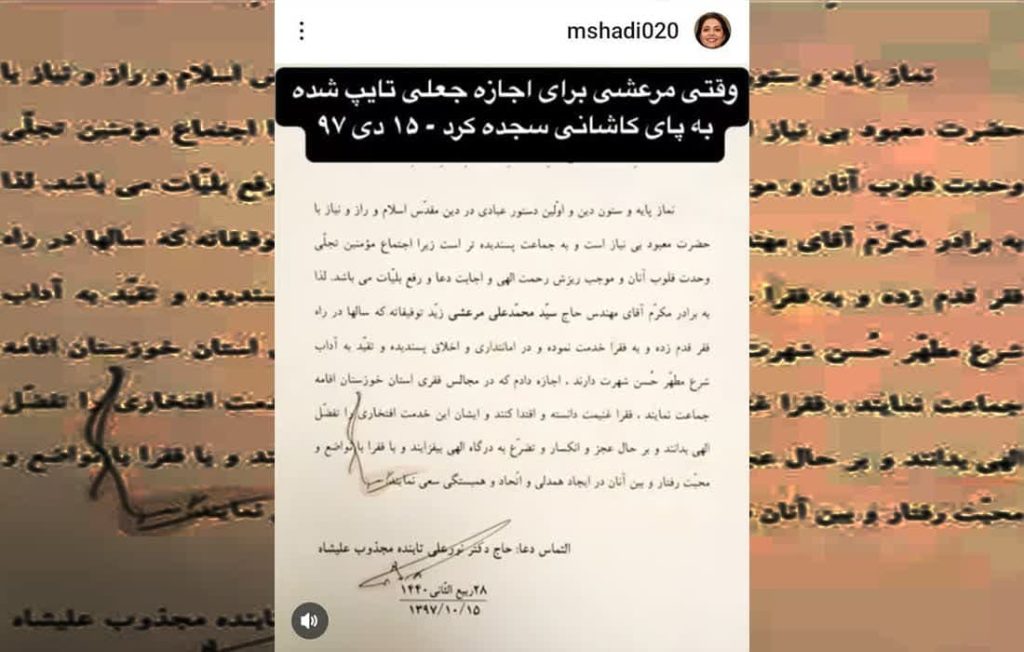 mshadi020
وقتی مرعشی برای اجازه جعلی تایپ شده
به پای کاشانی سجده کرد - ۱۵ دی ۹۷
نماز پایه و ستون دین و اوّلین دستور عبادی در دین مقدّس اسلام و راز و نیاز با
حضرت معبود بی نیاز است و به جماعت پسندیده تر است زیرا اجتماع مؤمنین تجلّی
وحدت قلوب آنان و موجب ریزش رحمت الهی و اجابت دعا و رفع بلیّات می باشد. لذا
به برادر مکرّم آقای مهندس حاج سیّد محمّدعلی مرعشی زیّد توفیقاته که سالها در راه
فقر قدم زده و به فقرا خدمت نموده و در امانتداری و اخلاق پسندیده و تقیّد به آداب
شرع مطهّر حُسن شهرت دارند ، اجازه دادم که در مجالس فقری استان خوزستان اقامه
جماعت نمایند ، فقرا غنیمت دانسته و اقتدا کنند و ایشان این خدمت افتخاری را تفضّل
الهی بدانند و بر حال عجز و انکسار و تضرّع به درگاه الهی بیفزایند و با فقرا با تواضع و
محبّت رفتار و بین آنان در ایجاد همدلی و اتّحاد و همبستگی سعی نمایند.
التماس دعا: حاج دکتر نورعلی تابنده مجذوب علیشاه
۲۸ ربیع الثّانی ۱۴۴۰
۱۳۹۷/۱۰/۱۵